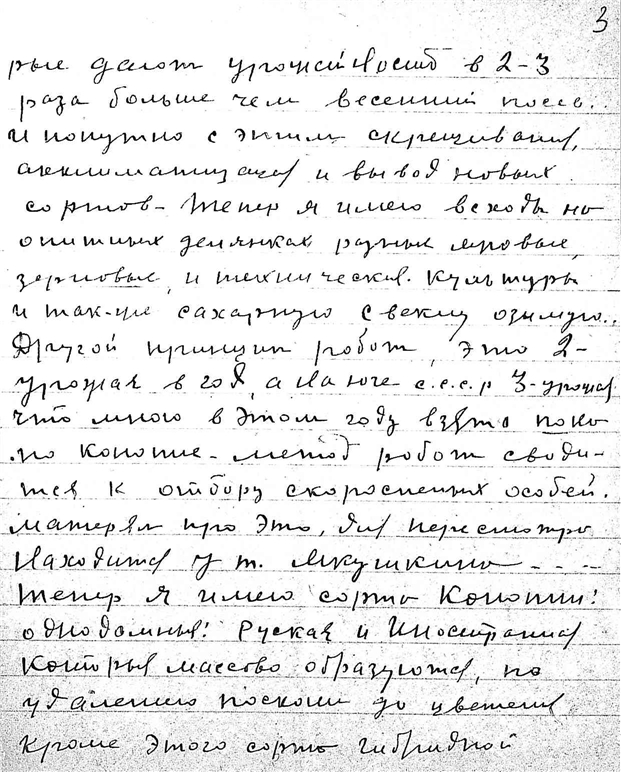 3
рые дают урожайность в 2-3
раза больше чем весенний посев..
и попутно с этим скрещивания,
акклиматизация и вывод новых
сортов - тепер я имею всходы на
опитных делянках разных яровые,
зерновые, и технические. культуры
и так-же сахарную свеклу озимую..
Другой принцип работ, это 2-
урожая в год, а на юге с.с.с.р 3-урожая
что мною в этом году взято пока
по конопле - метод работ своди-
тся к отбору скороспелых особей.
матерял про это, для пересмотра
находится у т. Якушкина - - -
тепер я имею сорта Конопли!
однодомные! Руская и Иностраная
которыя массово образуются, по
удалению поскони до цветения
кроме этого сорта гибридной